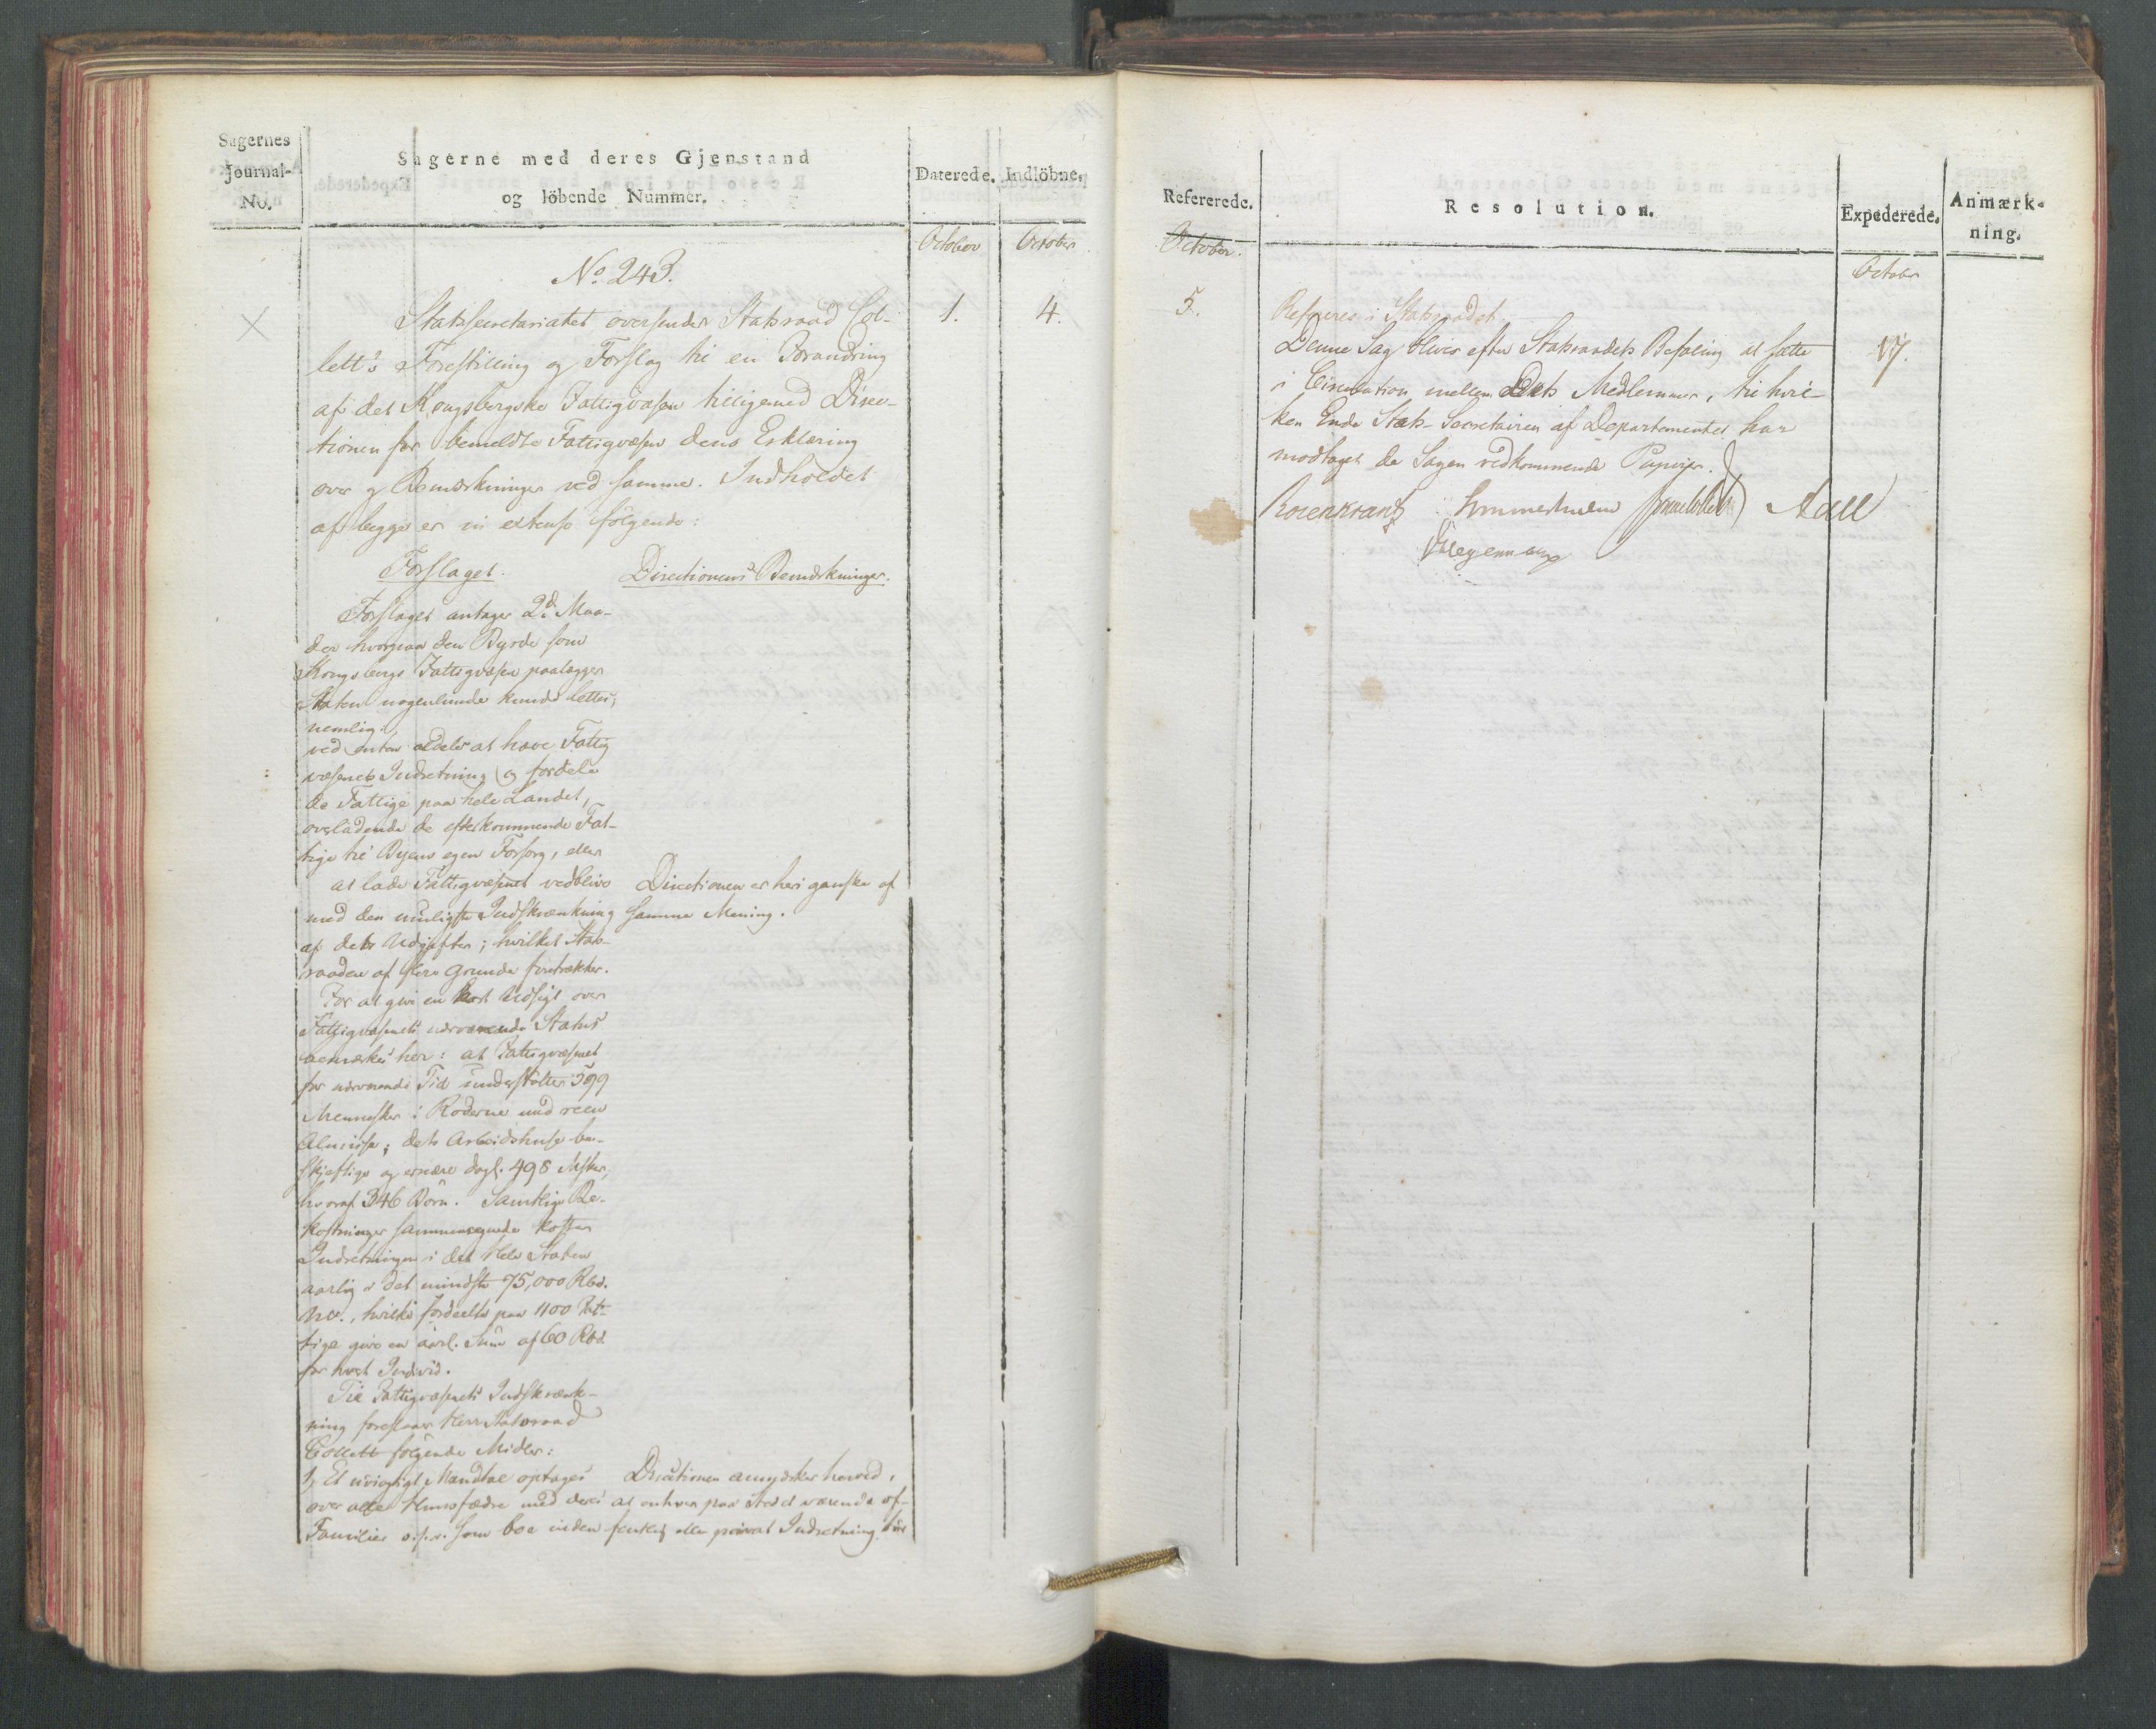 Sagernes
Journal-
No.
Sagerne med deres Gjenstand
og löbende Nummer.
Daterede.
Indlöbne.
October
October
No. 243.
1.
4.
Statssecretariatet oversender Statsraad Col-
lett's Forestilling og Forslag til en Forandring
af det Kongsbergske Fattigvæsen tilligemed Direc-
tionen for bemeldte Fattigvæsen dens Erklæring
over og Bemærkninger ved samme. Indholdet
af begge er in extenso følgende:
Forslaget.
Directionens Bemærkninger.
Forslaget antager 2de Maa-
der hvorpaa den Byrde som
Kongsbergs Fattigvæsen paalægger
Staten nogenlunde kunde lettes,
nemlig:
ved enten aldeles at hæve Fattig
væsenets Indretning og fordele
de Fattige paa hele Landet,
overladende de efterkommende Fat-
tige til Byens egen Forsorg, eller
at lade Fattigvæsenet vedblive
med den muligste Indskrænkning
af dets Udgifter; hvilket Stats-
raaden af flere Grunde foretrækker.
Directionen er heri ganske af
samme Mening.
For at give en kort Udsigt over
Fattigvæsenets nærværende Status
bemærkes her: at Fattigvæsenet
for nærværende Tid understøtter 599
Mennesker i Roderne med reen
Almisse; dets Arbeidshuse be-
skjeftige og ernære dagl. 498 Msker,
hvoraf 346 Børn. Samtlige Be-
kostninger sammenregnede koster
Indretningen i det Hele Staten
aarlig i det mindste 75,000 Rbd.
NV., hvilke fordeelte paa 1100 Fat-
tige give en aarl. Sum af 60 Rbd.
for hvert Individ.
Til Fattigvæsenets Indskrænk-
ning foreslaaer Herr Statsraad
Collett følgende Midler:
1, Et nøiagtigt Mandtal optages
over alle Huusfædre med deres
Familier o.s.v. som boe inden
Directionen anmærker herved,
at enhver paa Stedet værende of-
fentlig eller privat Indretning
Refererede.
Resolution.
Expederede.
Anmærk-
ning.
October.
October
5.
Refereres i Statsraadet.
Denne Sag bliver efter Statsraadets Befaling at sætte
i Circulation mellem Dets Medlemmer, til hvil-
ken Ende Stats-Secretairen af Departementet har
modtaget de Sagen vedkommende Papirer.
17.
Rosenkrantz Sommerhielm Jonas Collett Aall
Hegermann